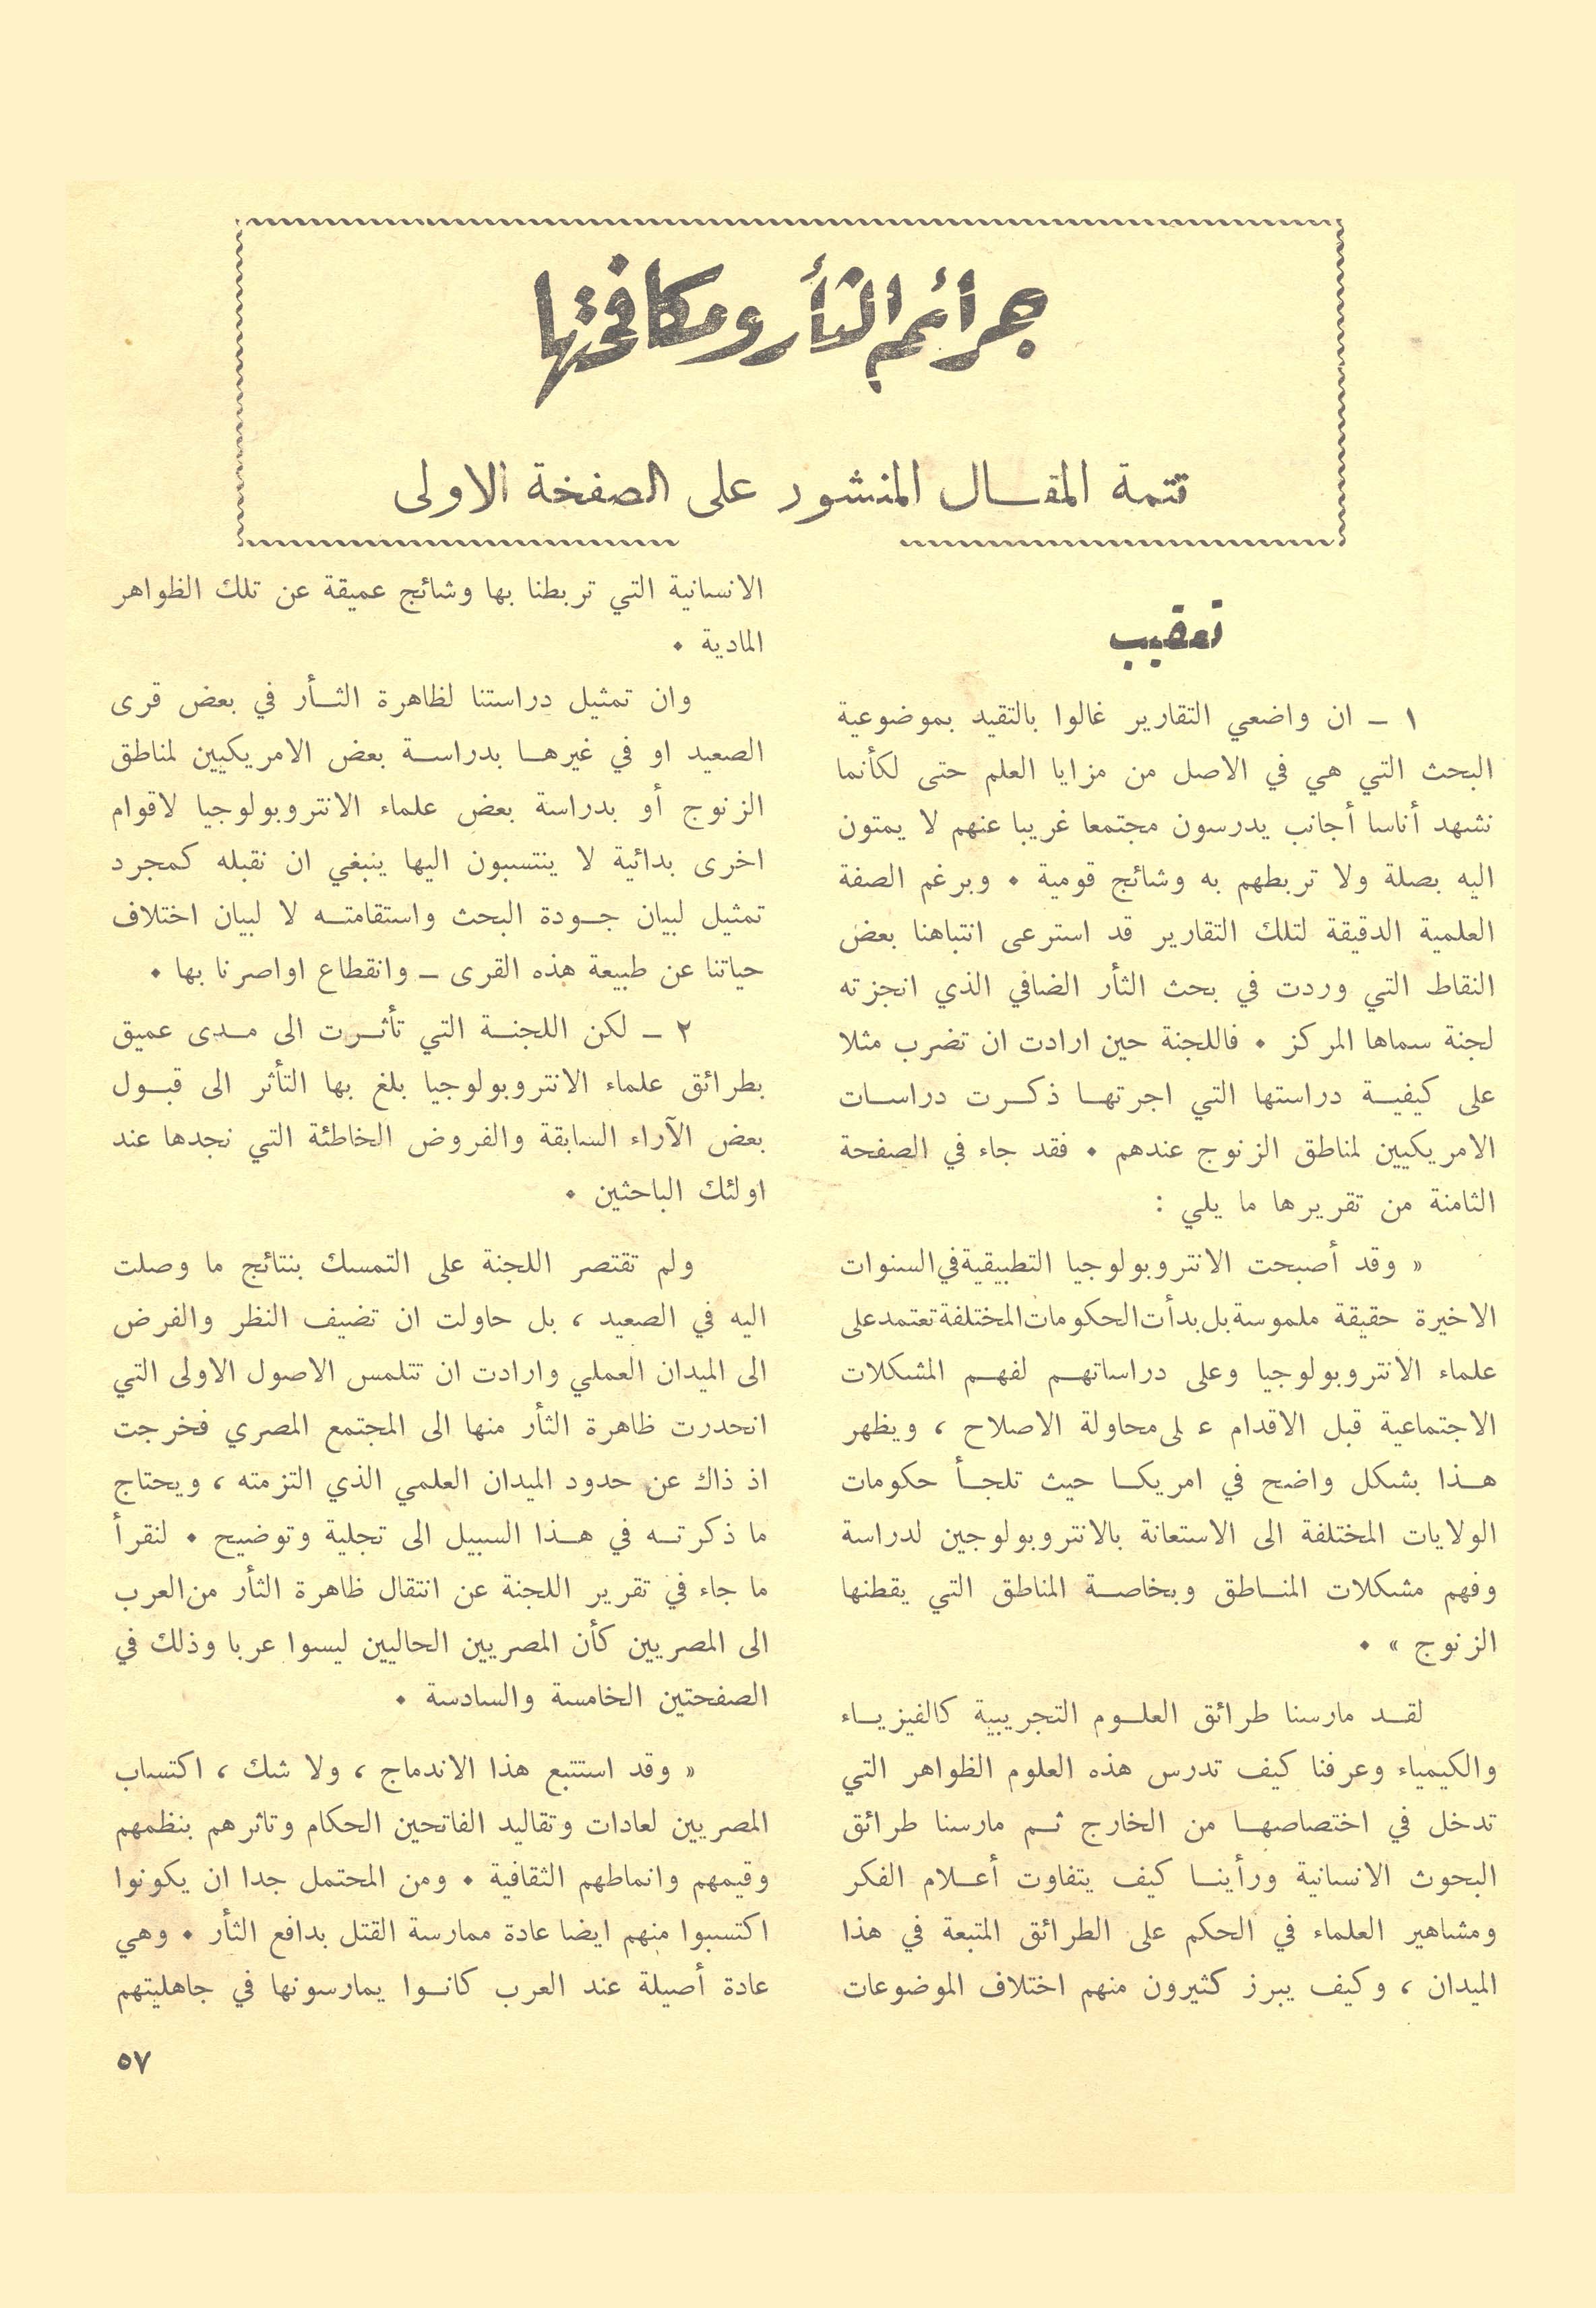 جرائم الثأر ومكافحتها
تتمة المقـــال المنشور على الصفخة الاولى
تعقيب
١ ـ ان واضعي التقارير غالوا بالتقيد بموضوعية
البحث التي هي في الاصل من مزايا العلم حتى لكأنما
نشهد أناسا أجانب يدرسون مجتمعا غريبا عنهم لا يمتون
اليه بصلة ولا تربطهم به وشائج قومية ٠ وبرغم الصفة
العلمية الدقيقة لتلك التقارير قد استرعى انتباهنا بعض
النقاط التي وردت في بحث الثأر الضافي الذي انجزته
لجنة سماها المركز ٠ فاللجنة حين ارادت ان تضرب مثلا
على كيفيــة دراستها التي اجرتهــا ذكــرت دراســات
الامريكيين لمناطق الزنوج عندهم ٠ فقد جاء في الصفحة
الثامنة من تقريرها ما يلي :
« وقد أصبحت الانتروبولوجيا التطبيقية في السنوات
الاخيرة حقيقة ملموسة بل بدأت الحكومات المختلفة تعتمد على
علماء الانتروبولوجيا وعلى دراساتهــم لفهــم المشكلات
الاجتماعية قبل الاقدام ء لى محاولة الاصلاح ، ويظهر
هــذا بشكل واضح في امريكــا حيث تلجــأ حكومات
الولايات المختلفة الى الاستعانة بالانتروبولوجين لدراسة
وفهم مشكلات المنــاطق وبخاصــة المناطق التي يقطنها
الزنوج » ٠
لقــد مارسنا طرائق العلــوم التجريبية كالفيزيــاء
والكيمياء وعرفنا كيف تدرس هذه العلوم الظواهر التي
تدخل في اختصاصهــا من الخارج ثــم مارسنا طرائق
البحوث الانسانية ورأينــا كيف يتفاوت أعــلام الفكر
ومشاهير العلماء في الحكم على الطرائق المتبعة في هذا
الميدان ، وكيف يبرز كثيرون منهم اختلاف الموضوعات
الانسانية التي تربطنا بها وشائج عميقة عن تلك الظواهر
المادية ٠
وان تمثيل دراستنا لظاهرة الثــأر في بعض قرى
الصعيد او في غيرهــا بدراســة بعض الامريكيين لمناطق
الزنوج أو بدراسة بعض علماء الانتروبولوجيا لاقوام
اخرى بدائية لا ينتسبون اليها ينبغي ان نقبله كمجرد
تمثيل لبيان جــودة البحث واستقامتــه لا لبيان اختلاف
حياتنا عن طبيعة هذه القرى ـ وانقطاع اواصرنا بها ٠
٢ ـ لكن اللجنــة التي تأثــرت الى مــدى عميق
بطرائق علماء الانتروبولوجيا بلغ بها التأثر الى قبــول
بعض الآراء السابقة والفروض الخاطئة التي نجدها عند
اولئك الباحثين ٠
ولم تقتصر اللجنة على التمسك بنتائج ما وصلت
اليه في الصعيد ، بل حاولت ان تضيف النظر والفرض
الى الميدان العملي وارادت ان تتلمس الاصول الاولى التي
انحدرت ظاهرة الثأر منها الى المجتمع المصري فخرجت
اذ ذاك عن حدود الميدان العلمي الذي التزمته ، ويحتاج
ما ذكرتــه في هــذا السبيل الى تجلية وتوضيح ٠ لنقرأ
ما جاء في تقرير اللجنة عن انتقال ظاهرة الثأر من العرب
الى المصريين كأن المصريين الحاليين ليسوا عربا وذلك في
الصفحتين الخامسة والسادسة ٠
« وقد استتبع هذا الاندماج ، ولا شك ، اكتساب
المصريين لعادات وتقاليد الفاتحين الحكام وتاثرهم بنظمهم
وقيمهم وانماطهم الثقافية ٠ ومن المحتمل جدا ان يكونوا
اكتسبوا منهم ايضا عادة ممارسة القتل بدافع الثأر ٠ وهي
عادة أصيلة عند العرب كانــوا يمارسونها في جاهليتهم
٥٧